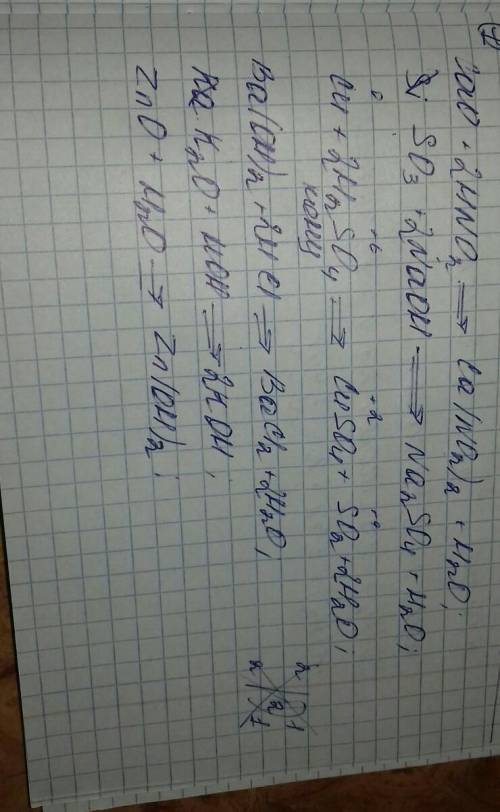 CaO + 2HNO₂ ⟹ Ca(NO₂)₂ + H₂O;
SO₃ + 2NaOH ⟹ Na₂SO₄ + H₂O;
0 +6 +2 +4
Cu + 2H₂SO₄ ⟹ CuSO₄ + SO₂ + 2H₂O;
конц
Ba(OH)₂ + 2HCl ⟹ BaCl₂ + 2H₂O;
K₂O + HOH ⟹ 2KOH;
ZnO + H₂O ⟹ Zn(OH)₂;